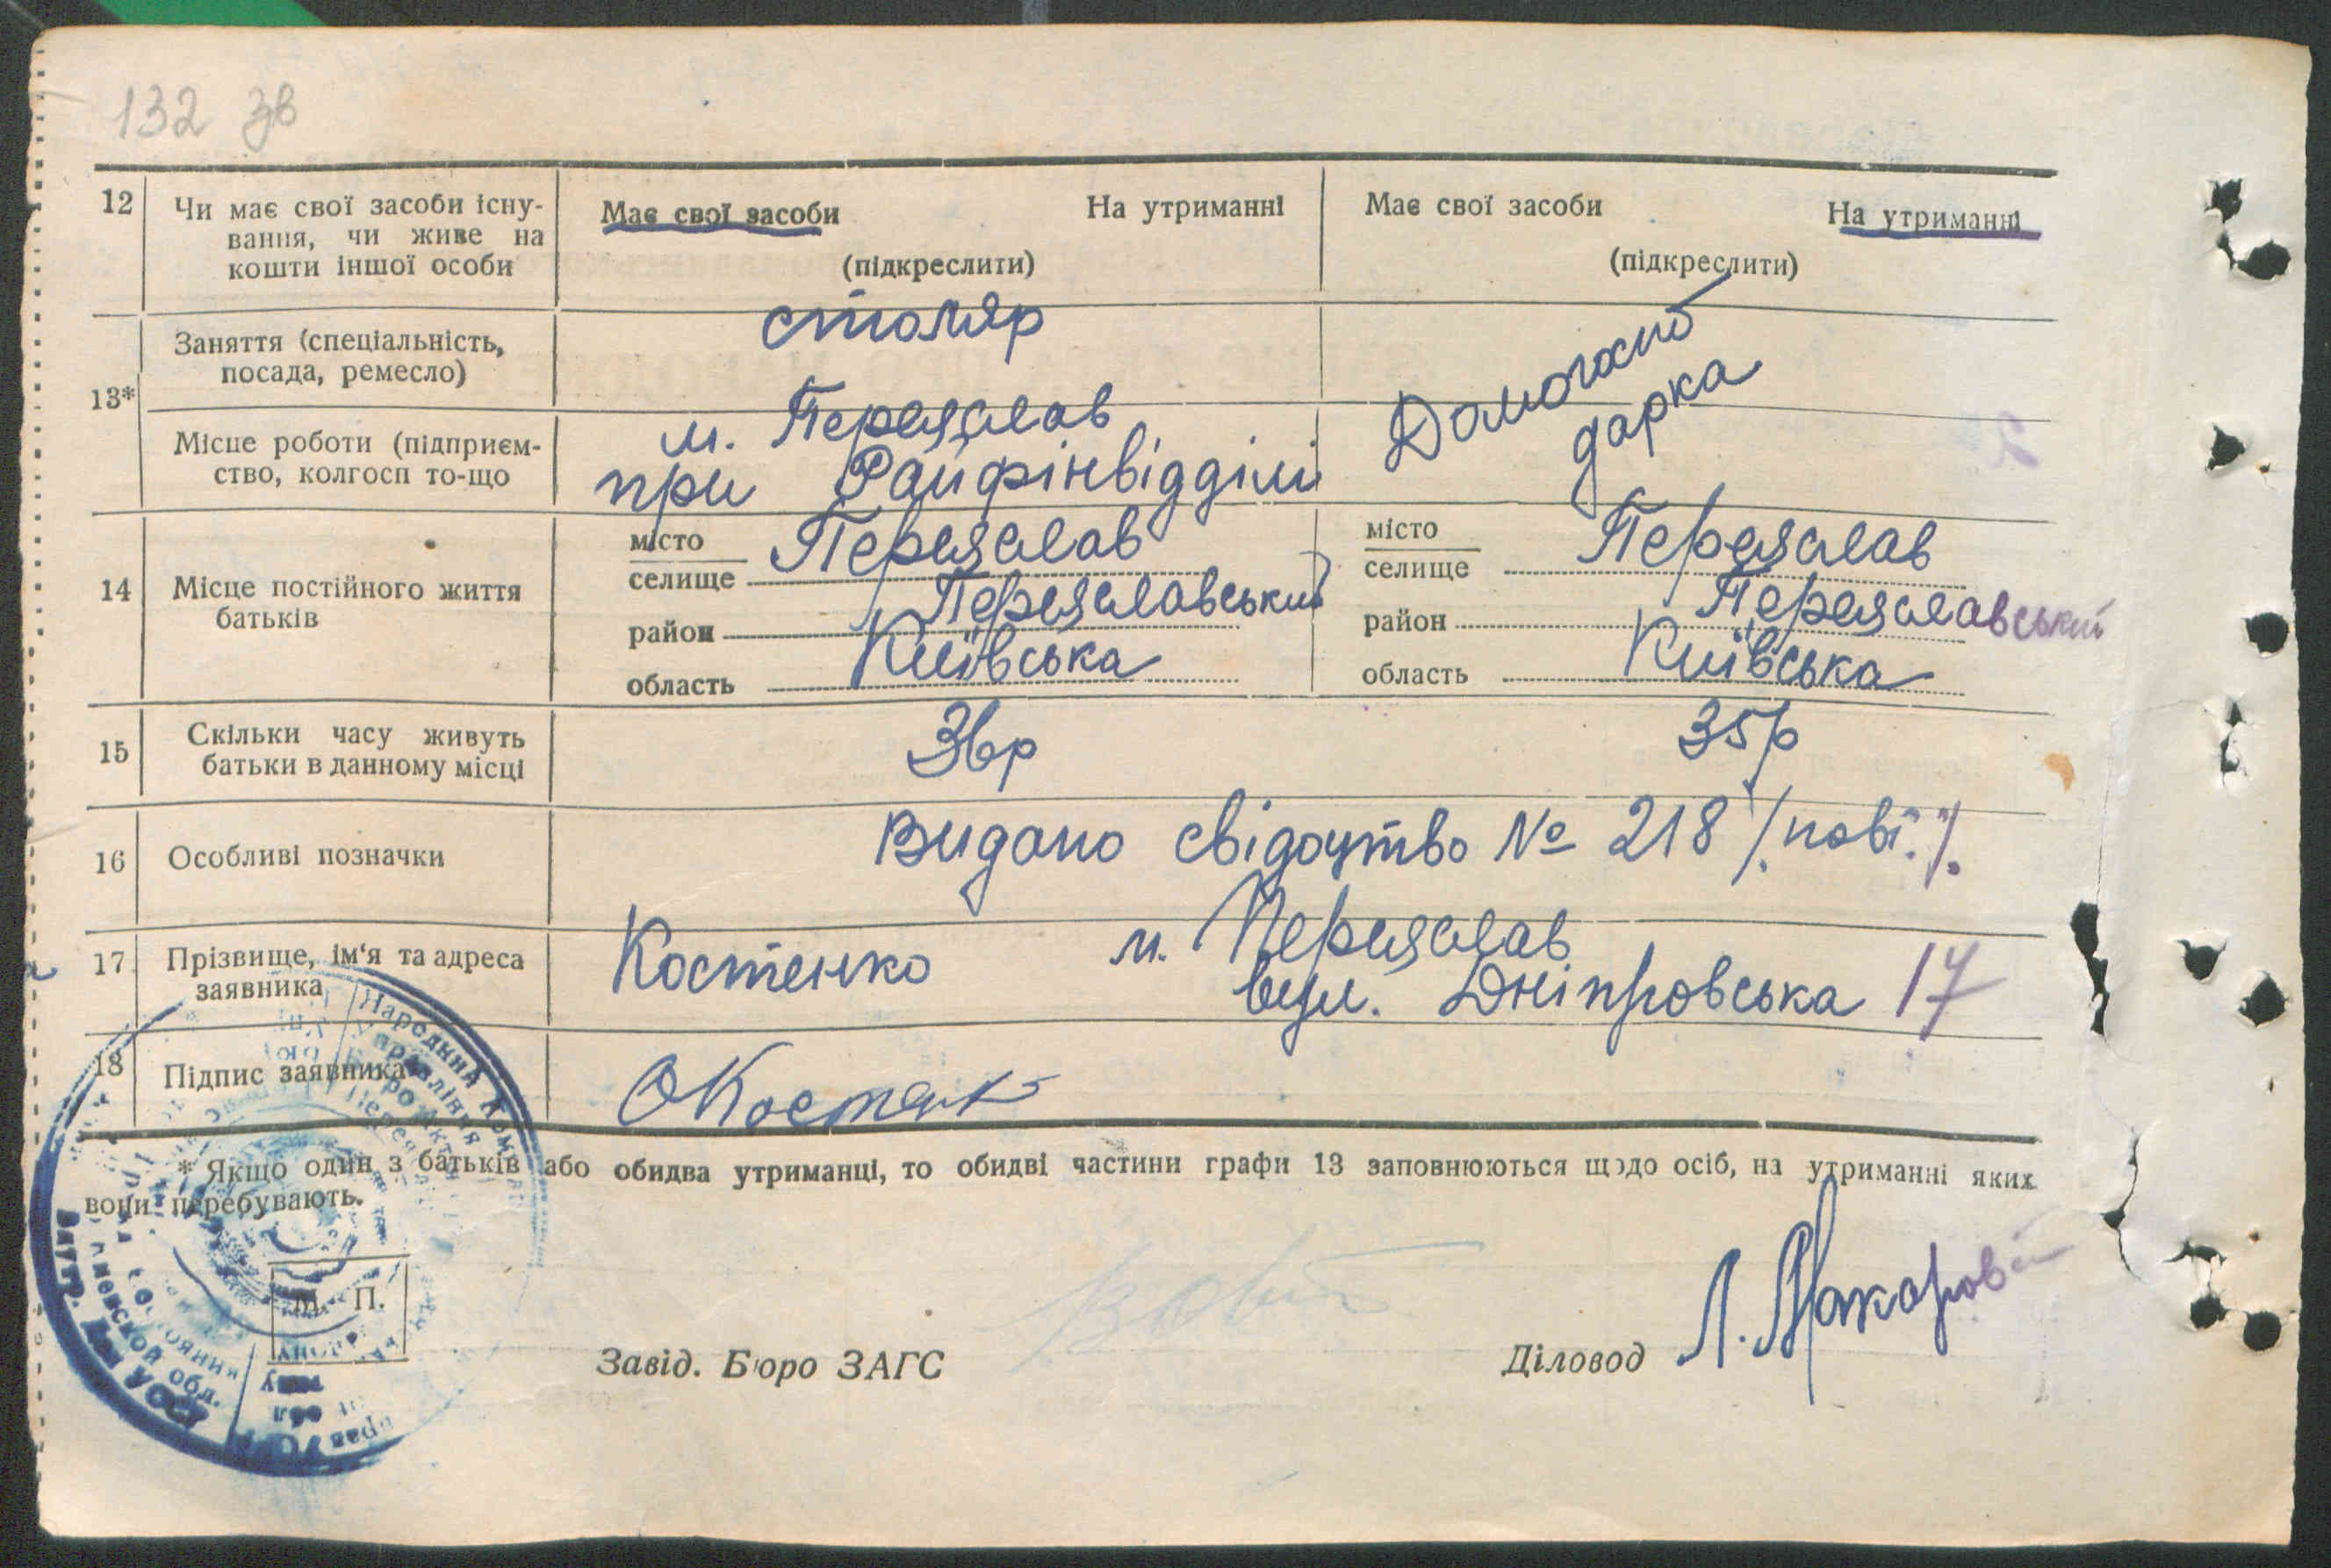 132 зв
12 Чи має свої засоби існу-
вання, чи живе на
кошти іншої особи
Має свої засоби На утриманні
(підкреслити)
Має свої засоби На утриманні
(підкреслити)
13*
Заняття (спеціальність,
посада, ремесло)
столяр
Домогаспо
дарка
Місце роботи (підприєм-
ство, колгосп то-що
м. Переяслав
при Райфінвідділі
14 Місце постійного життя
батьків
місто
селище Переяслав
район Переяславський
область Київська
місто
селище Переяслав
район Переяславський
область Київська
15 Скільки часу живуть
батьки в данному місці
36р
35р
16 Особливі позначки
Видано свідоцтво № 218 /.пові./.
17 Прізвище, ім'я та адреса
заявника
Костенко м. Переяслав
вул. Дніпровська 17
18 Підпис заявника
ОКостенк
* Якщо один з батьків або обидва утриманці, то обидві частини графи 13 заповнюються щодо осіб, на утриманні яких
вони перебувають.
М. П.
Завід. Бюро ЗАГС
Діловод Л. Макаров